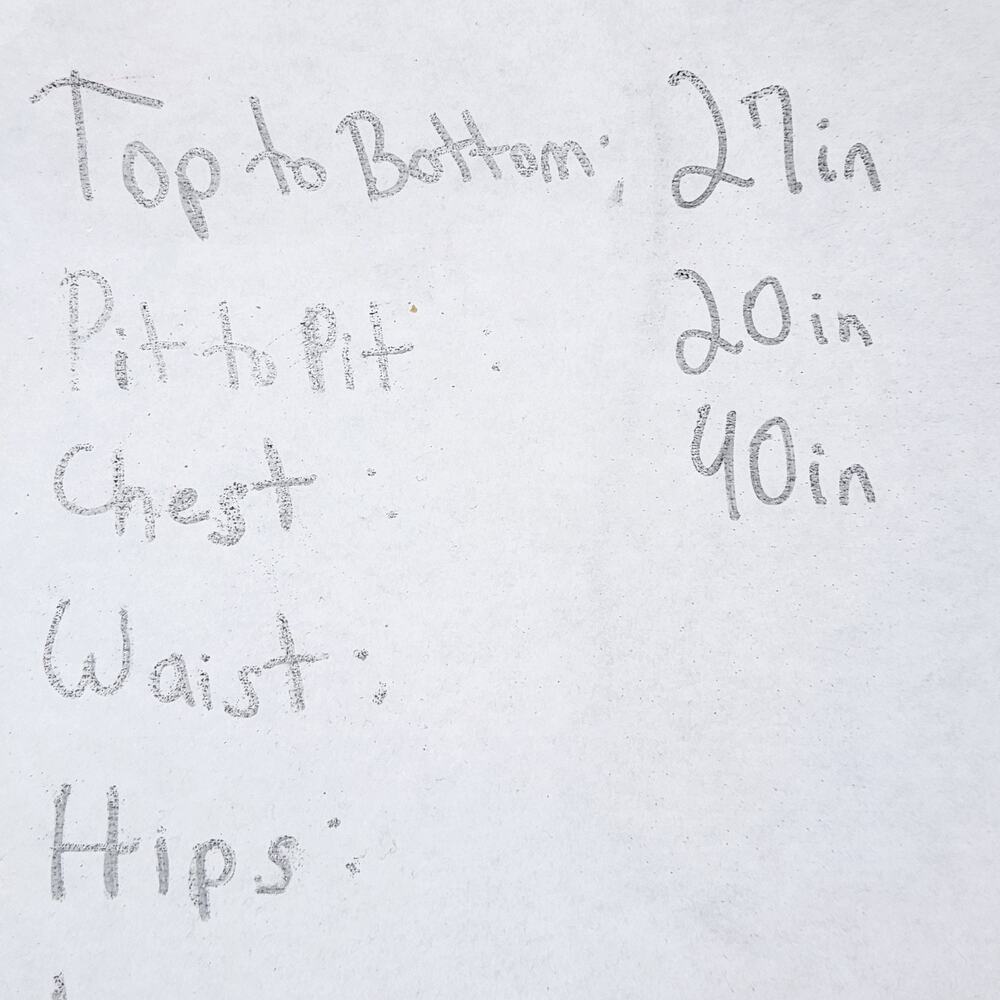 Top to Bottom: 27in
Pit to Pit : 20in
Chest : 40in
Waist :
Hips :